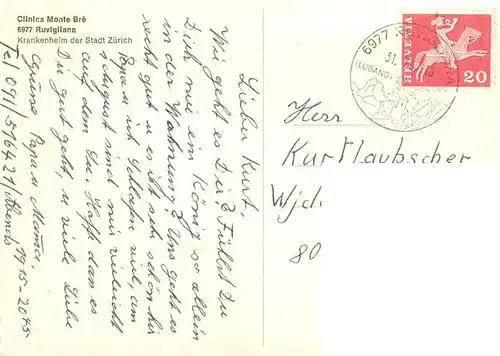 Clinica Monte Brè
6977 Ruvigliana
Krankenheim der Stadt Zürich
Lieber Kurt,
Wie geht es Dir? Fühlst Du
Dich wie ein König so allein
in der Wohnung? Uns geht es
recht gut u es ist sehr schön hir
Papa u ich schlafen viel, am
August sind wir vieleicht
auf dem Hoffe das es
Dir gut geht, u viele Liebe
Grüsse Papa u Mama.
Tel 091/516421/Abends 1915-2045
6977
31.
(LUGANO)
HELVETIA
20
Herr
Kurt Laubscher
Wjd
80